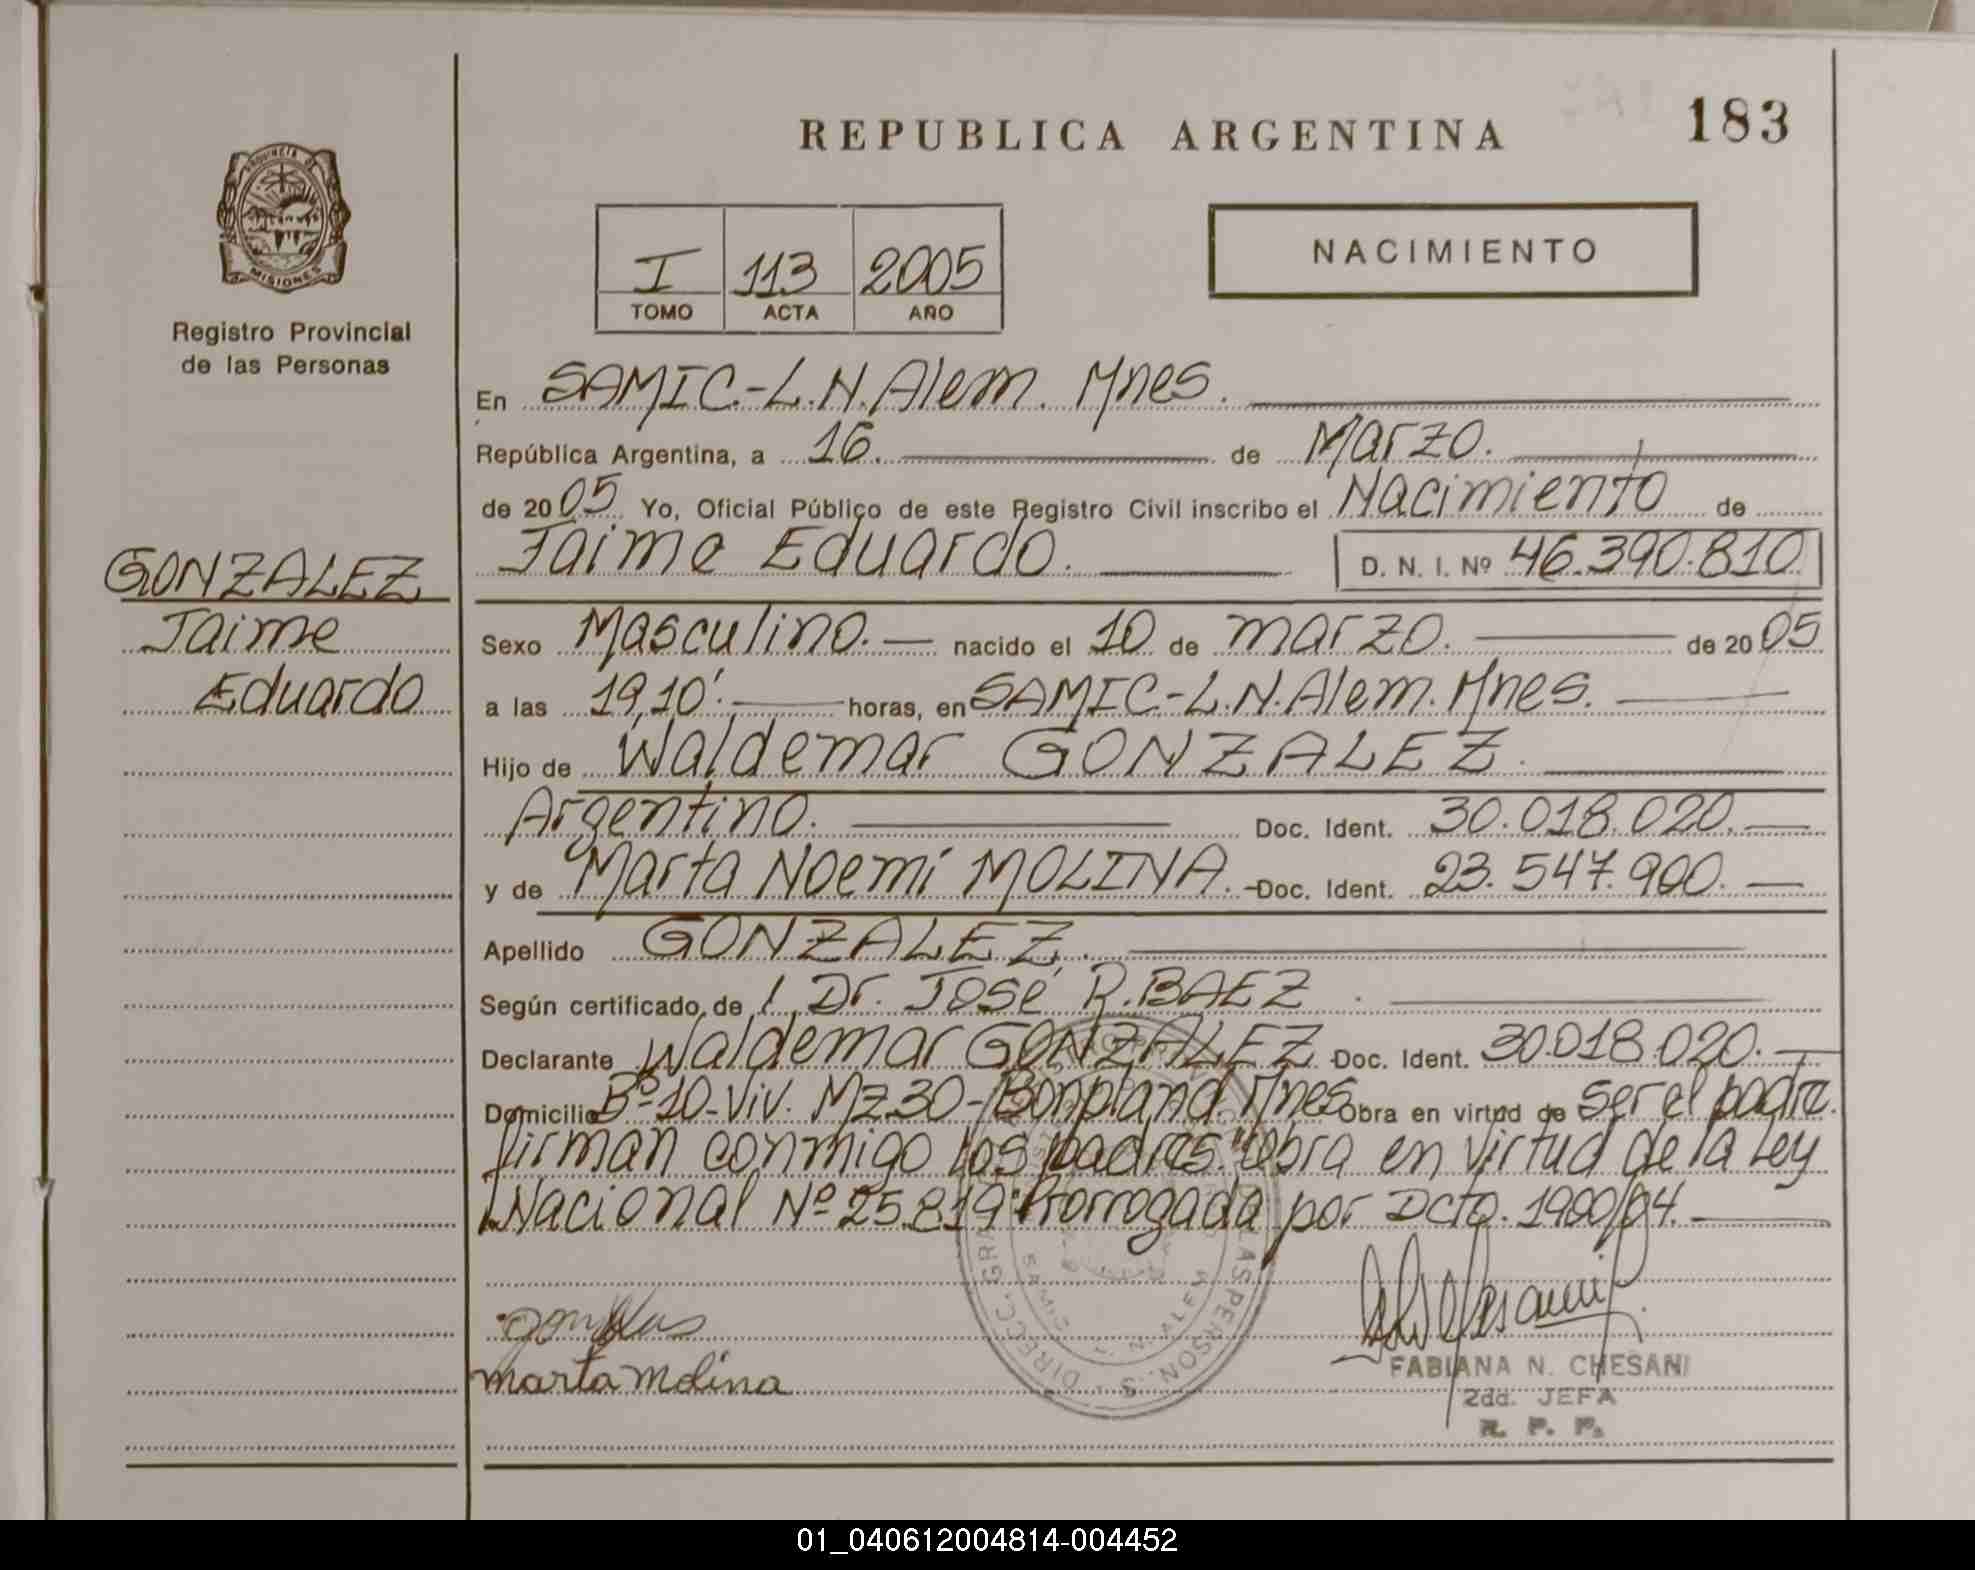 REPUBLICA ARGENTINA
183
PROVINCIA DE
MISIONES
Registro Provincial
de las Personas
I 113 2005
TOMO ACTA AÑO
NACIMIENTO
En SAMIC.-L.N.Alem. Mnes.
República Argentina, a 16. de Marzo.
de 2005 Yo, Oficial Público de este Registro Civil inscribo el Nacimiento de
Jaime Eduardo. D. N. I. Nº 46.390.810.
GONZALEZ
Jaime
Eduardo
Sexo Masculino. nacido el 10 de marzo. de 2005
a las 19,10'. horas, en SAMIC-L.N.Alem. Mnes.
Hijo de Waldemar GONZALEZ.
Argentino. Doc. Ident. 30.018.020.
y de Marta Noemí MOLINA. Doc. Ident. 23.547.900.
Apellido GONZALEZ.
Según certificado de Dr. José R. BAEZ
Declarante Waldemar GONZALEZ Doc. Ident. 30.018.020.
Domicilio Bº-10-Viv. Mz.30-Bonpland. Mnes Obra en virtud de ser el padre.
firman conmigo los padres "obra en virtud de la Ley
Nacional Nº 25.819 Prorrogada por Dcto. 1900/04.
marta molina
FABIANA N. CHESANI
2da. JEFA
R. P. P.
01_040612004814-004452